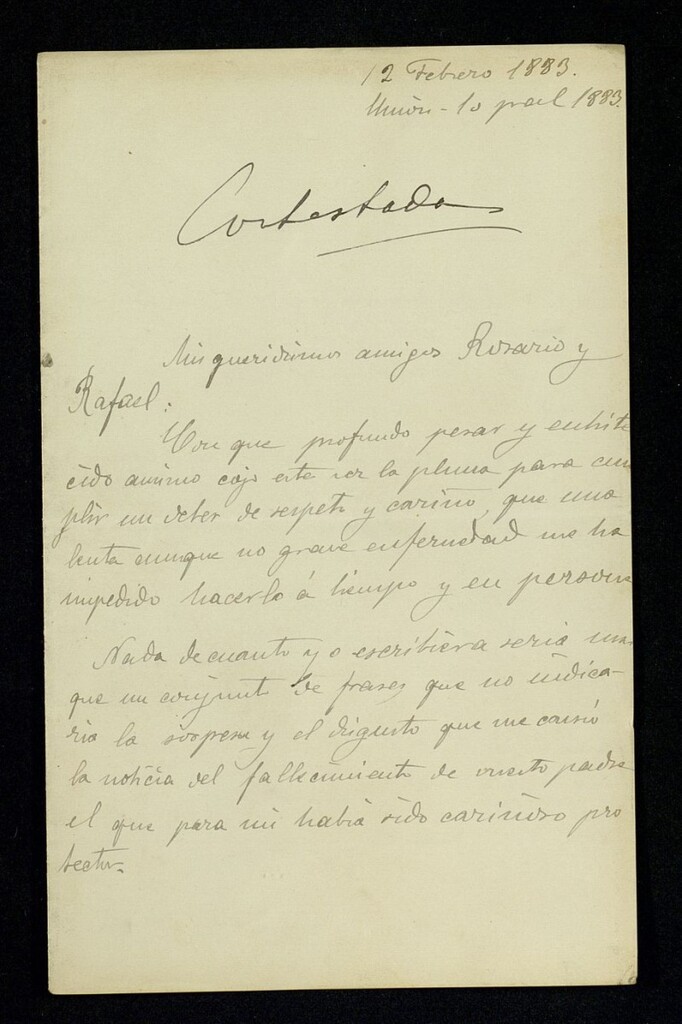 12 Febrero 1883.
Unión - 10 1883.
Contestada
Mis queridisimos amigos Rosario y
Rafael:
Con que profundo pesar y entriste
cido animo cojo esta vez la pluma para cum
plir un deber de respeto y cariño, que una
lenta aunque no grave enfermedad me ha
impedido hacerlo á tiempo y en persona
Nada de cuanto yo escribiera seria mas
que un conjunto de frases que no indica-
ria la sorpresa y el disgusto que me causó
la noticia del fallecimiento de vuestro padre
el que para mi habia sido cariñoso pro
tector.